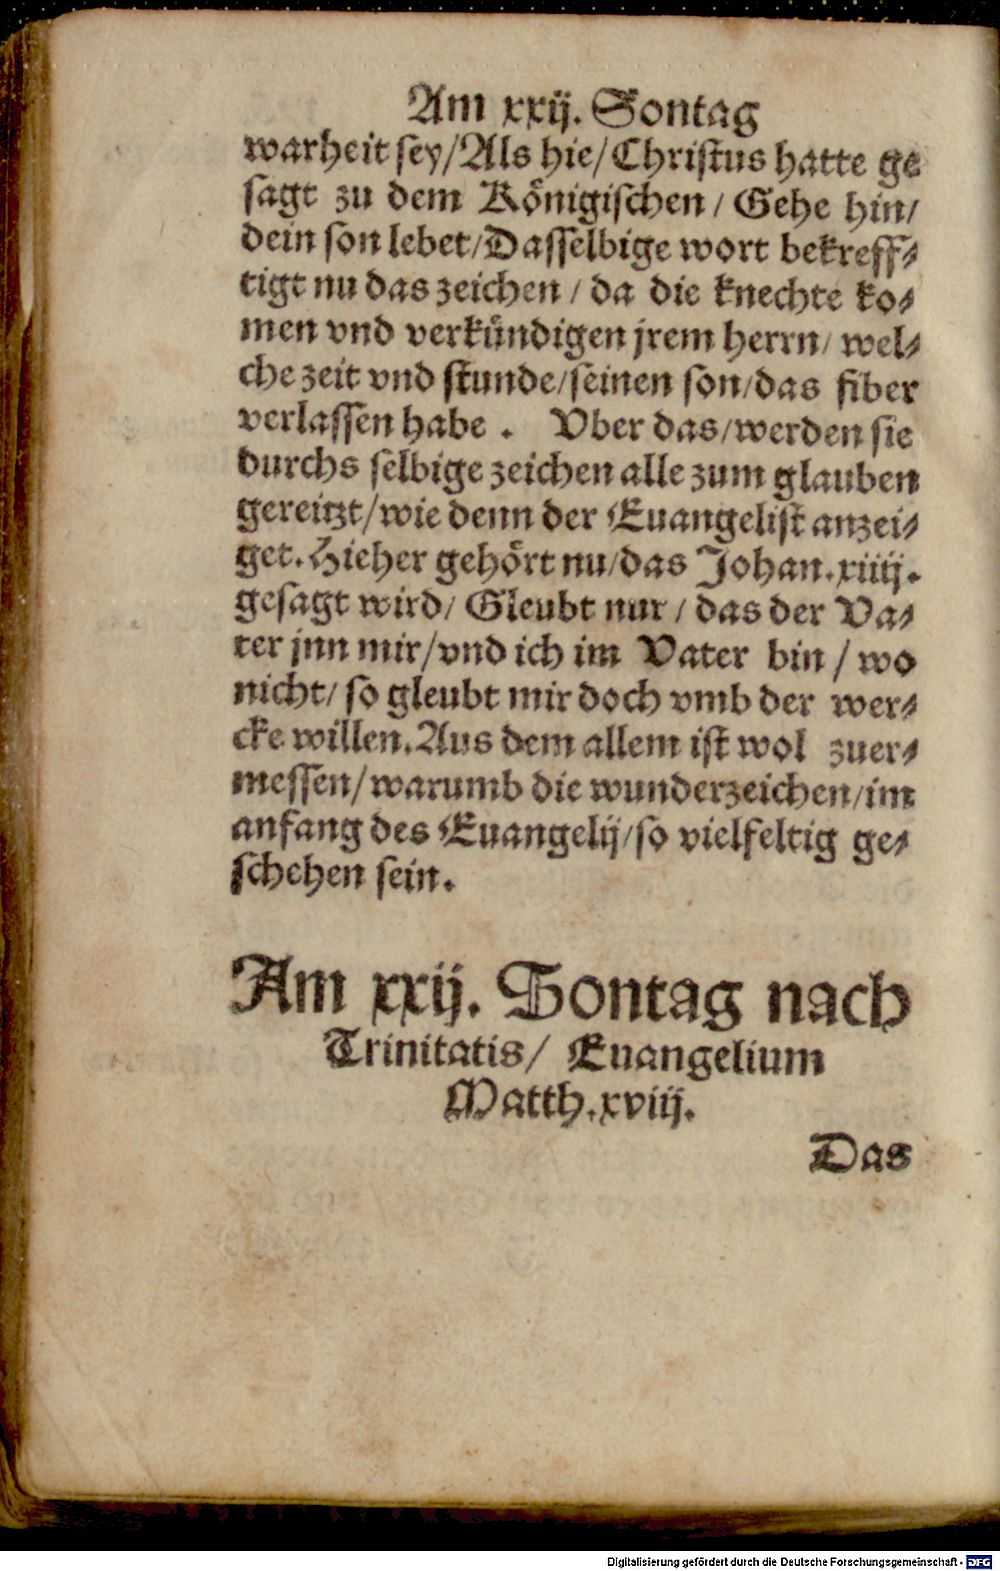 Am xxij. Sontag
warheit sey/Als hie/Christus hatte ge
sagt zu dem Königischen/ Gehe hin/
dein son lebet/Dasselbige wort bekreff⸗
tigt nu das zeichen/ da die knechte ko⸗
men vnd verkündigen jrem herrn/ wel⸗
che zeit vnd stunde/seinen son/das fiber
verlassen habe . Vber das/werden sie
durchs selbige zeichen alle zum glauben
gereitzt/wie denn der Euangelist anzei⸗
get. Hieher gehört nu/das Johan.xiiij.
gesagt wird/ Gleubt nur/ das der Va⸗
ter jnn mir/vnd ich im Vater bin/ wo
nicht/ so gleubt mir doch vmb der wer⸗
cke willen. Aus dem allem ist wol zuer⸗
messen/warumb die wunderzeichen/im
anfang des Euangelij/so vielfeltig ge⸗
schehen sein.
Am xxij. Sontag nach
Trinitatis/ Euangelium
Matth.xviij.
Das
Digitalisierung gefördert durch die Deutsche Forschungsgemeinschaft - DFG